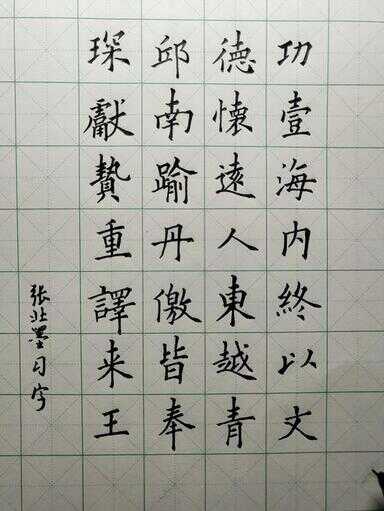 功壹海内終以文
德懷遠人東越青
邱南踰丹徼皆奉
琛獻贄重譯来王
张北墨习字